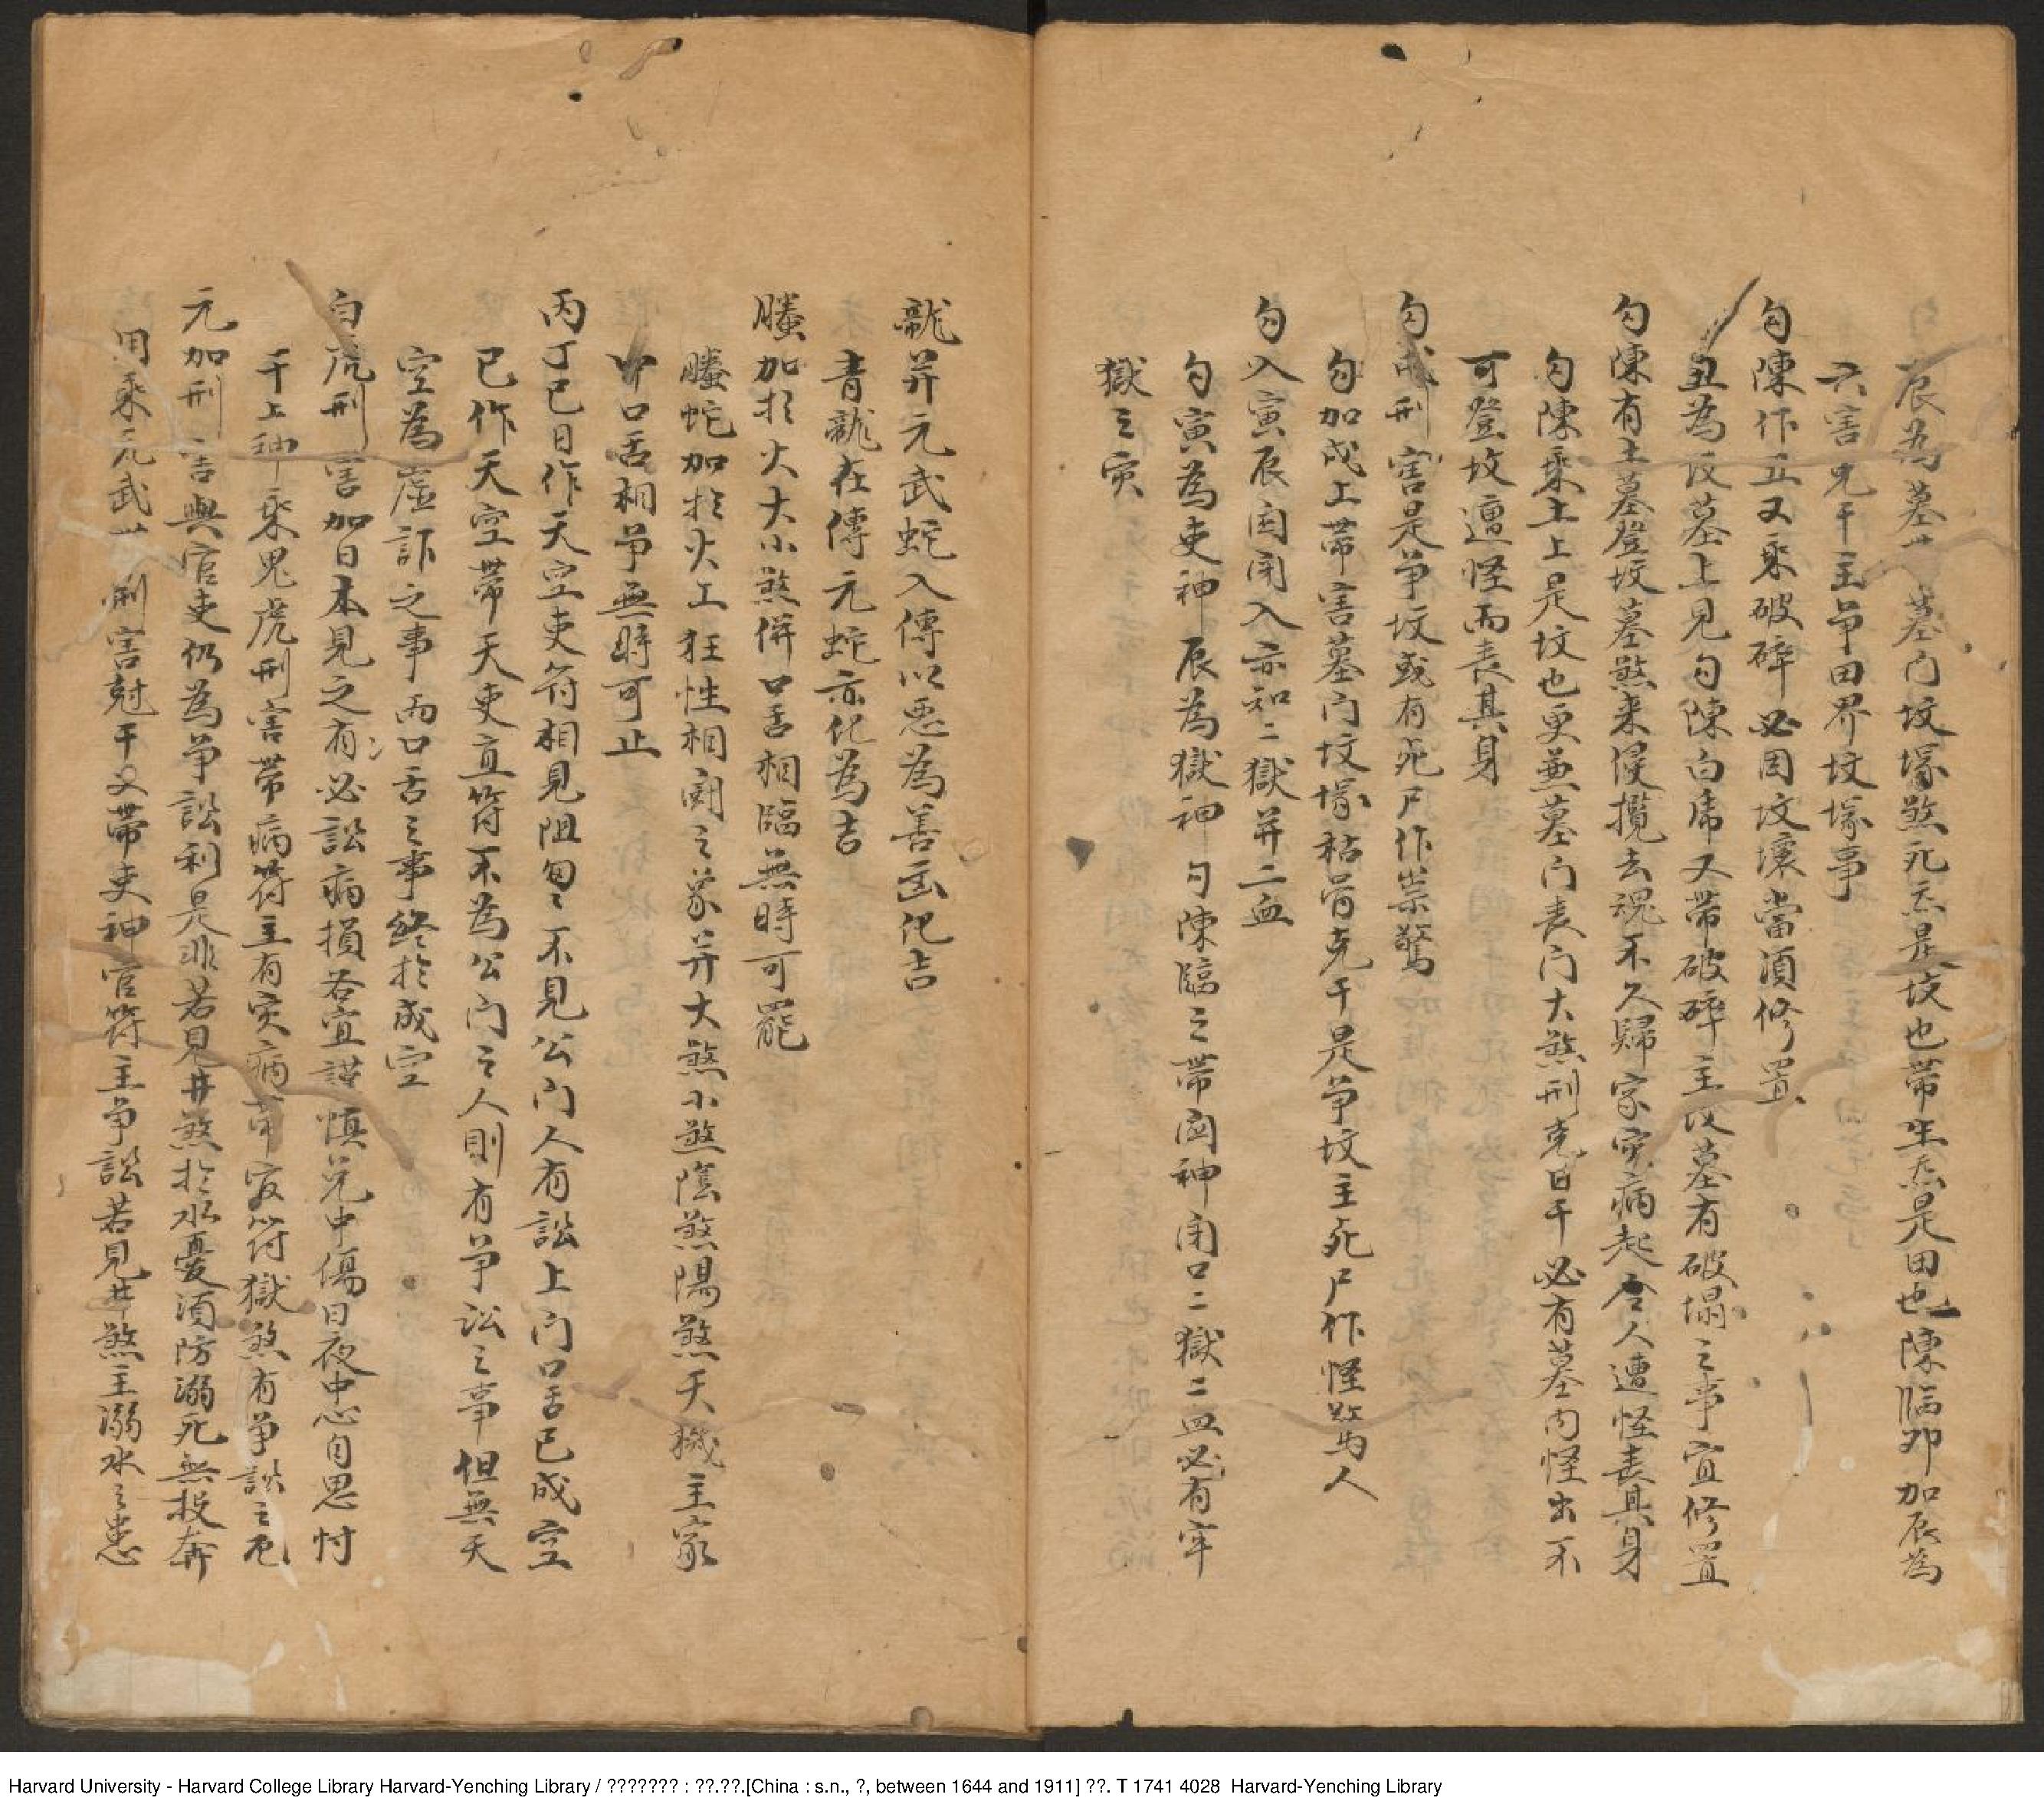 辰為墓丶墓门坟塚煞死炁是坟也带生炁是田也陳临夘加辰為
六害克干主争田界坟塚事
勾陳作丑又乘破碎必因坟壞當須修置
丑為坟墓上見勾陳白虎又带破碎主坟墓有破塌之事宜修置
勾陳有土墓登坟墓煞来侵攪去魂不久歸家灾病起令人遭怪丧其身
勾陳乘土上是坟也更兼墓门丧门大煞刑克日干必有墓内怪出不
可登坟遭怪而丧其身
勾戌刑害是争坟或有死尸作祟驚
勾加戌上带害墓门坟塚枯骨克干是争坟主死尸作怪驚人
勾入寅辰囚闭入亦知二獄并二血
勾寅為吏神辰為獄神勾陳臨之带囚神闭口二獄二血必有牢
獄之灾
龍并元武蛇入傳以惡為善凶化吉
青龍在傳元蛇亦化為吉
螣加扵火大小煞併口舌相臨無時可罷
螣蛇加扵火上狂性相鬪之象并大煞小煞陰煞陽煞天機主家
中口舌相争無時可止
丙丁巳日作天空吏符相見阻匆匆不見公门人有訟上门口舌已成空
已作天空带天吏直符不為公门之人則有争訟之事但無天
空為虛詐之事而口舌之事終扵成空
白虎刑害加日本見之有必訟病損若宜謹慎兇中傷日夜中心自思忖
干上神乘鬼虎刑害带病符主有灾病带官符獄煞有争訟之危
元加刑害與官吏仍為争訟利是非若見井煞扵水憂須防溺死無投奔
用乘元武丶刑害尅干又带吏神官符主争訟若見井煞主溺水之患
Harvard University - Harvard College Library Harvard-Yenching Library / ??????? : ??.??.[China : s.n., ?, between 1644 and 1911] ??. T 1741 4028 Harvard-Yenching Library